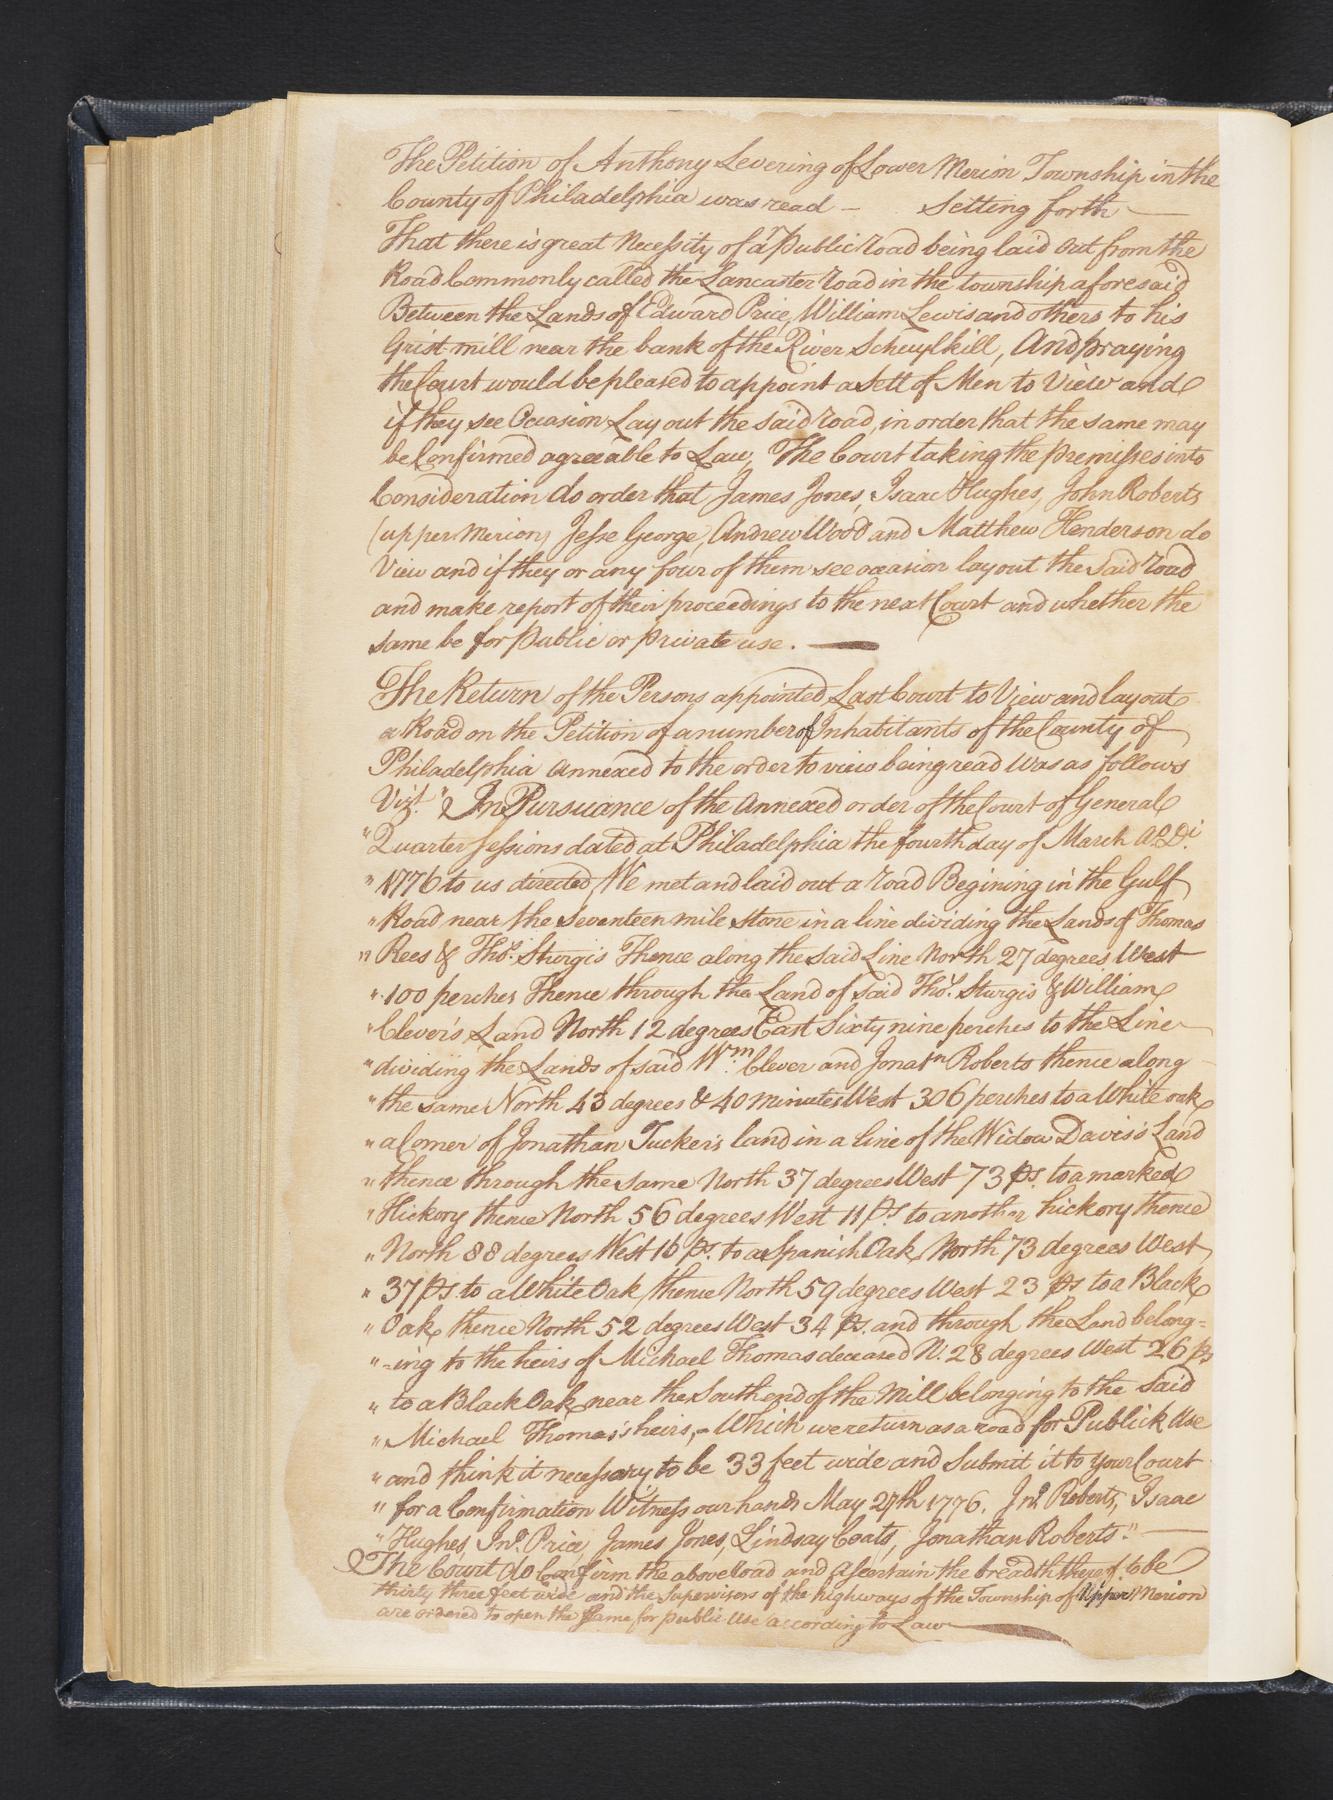 The Petition of Anthony Levering of Lower Merion Township in the
County of Philadelphia was read – Setting forth —
That there is great Necessity of a Public road being laid out from the
Road Commonly called the Lancaster road in the township aforesaid
Between the Lands of Edward Price, William Lewis and others to his
Grist mill near the bank of the River Schuylkill, And praying
the Court would be pleased to appoint a Sett of Men to View and
if they see Occasion Lay out the said road, in order that the same may
be Confirmed agreeable to Law, The Court taking the premisses into
Consideration do order that James Jones, Isaac Hughes, John Roberts
(upper Merion) Jesse George, Andrew Wood and Matthew Henderson do
View and if they or any four of them see occasion lay out the said road
and make report of their proceedings to the next Court and whether the
same be for public or private use. —
The Return of the Persons appointed Last Court to View and lay out
a Road on the Petition of a number of Inhabitants of the County of
Philadelphia annexed to the order to view being read was as follows
Vizt. " In Pursuance of the Annexed order of the Court of General
" Quarter Sessions dated at Philadelphia the fourth day of March A.Di.
" 1776 to us directed, We met and laid out a road Begining in the Gulf
" Road near the Seventeen mile Stone in a line dividing the Lands of Thomas
" Rees & Thos. Sturgis Thence along the said Line North 27 degrees West
" 100 perches Thence through the Land of said Thos. Sturgis & William
" Clever's Land North 12 degrees East Sixty nine perches to the Line
" dividing the Lands of said Wm. Clever and Jonatn Roberts thence along
" the same North 43 degrees & 40 minutes West 306 perches to a White oak
" a Corner of Jonathan Tucker's land in a line of the Widow Davis's Land
" thence through the same North 37 degrees West 73 ps. to a marked
" Hickory thence North 56 degrees West 11 ps. to another hickory thence
" North 88 degrees West 16 ps. to a Spanish Oak North 73 degrees West
" 37 ps. to a White Oak, thence North 59 degrees West 23 ps to a Black
" Oak, thence North 52 degrees West 34 ps. and through the Land belong=
" =ing to the heirs of Michael Thomas deceased N. 28 degrees West 26 ps
" to a Black Oak near the South end of the Mill belonging to the Said
" Michael Thomas's heirs, – Which we return as a road for Publick Use
" and think it necessary to be 33 feet wide and Submit it to your Court
" for a Confirmation Witness our hands May 27th 1776. Jno. Roberts, Isaac
" Hughes, Jno. Price, James Jones, Lindsay Coats, Jonathan Roberts." —
The Court do Confirm the above road and Ascertain the breadth thereof to be
thirty three feet wide and the Supervisors of the highways of the Township of Upper Merion
are ordered to open the Same for public Use according to Law —